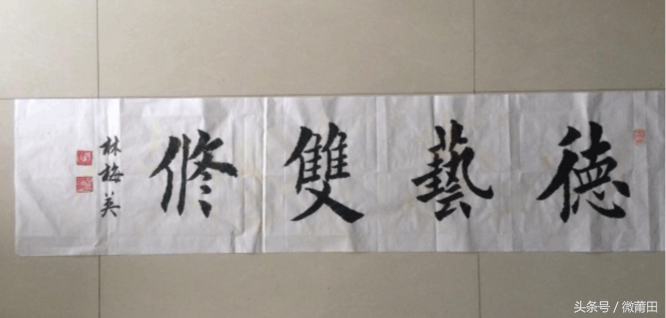 德藝雙修
林梅英
头条号／微莆田